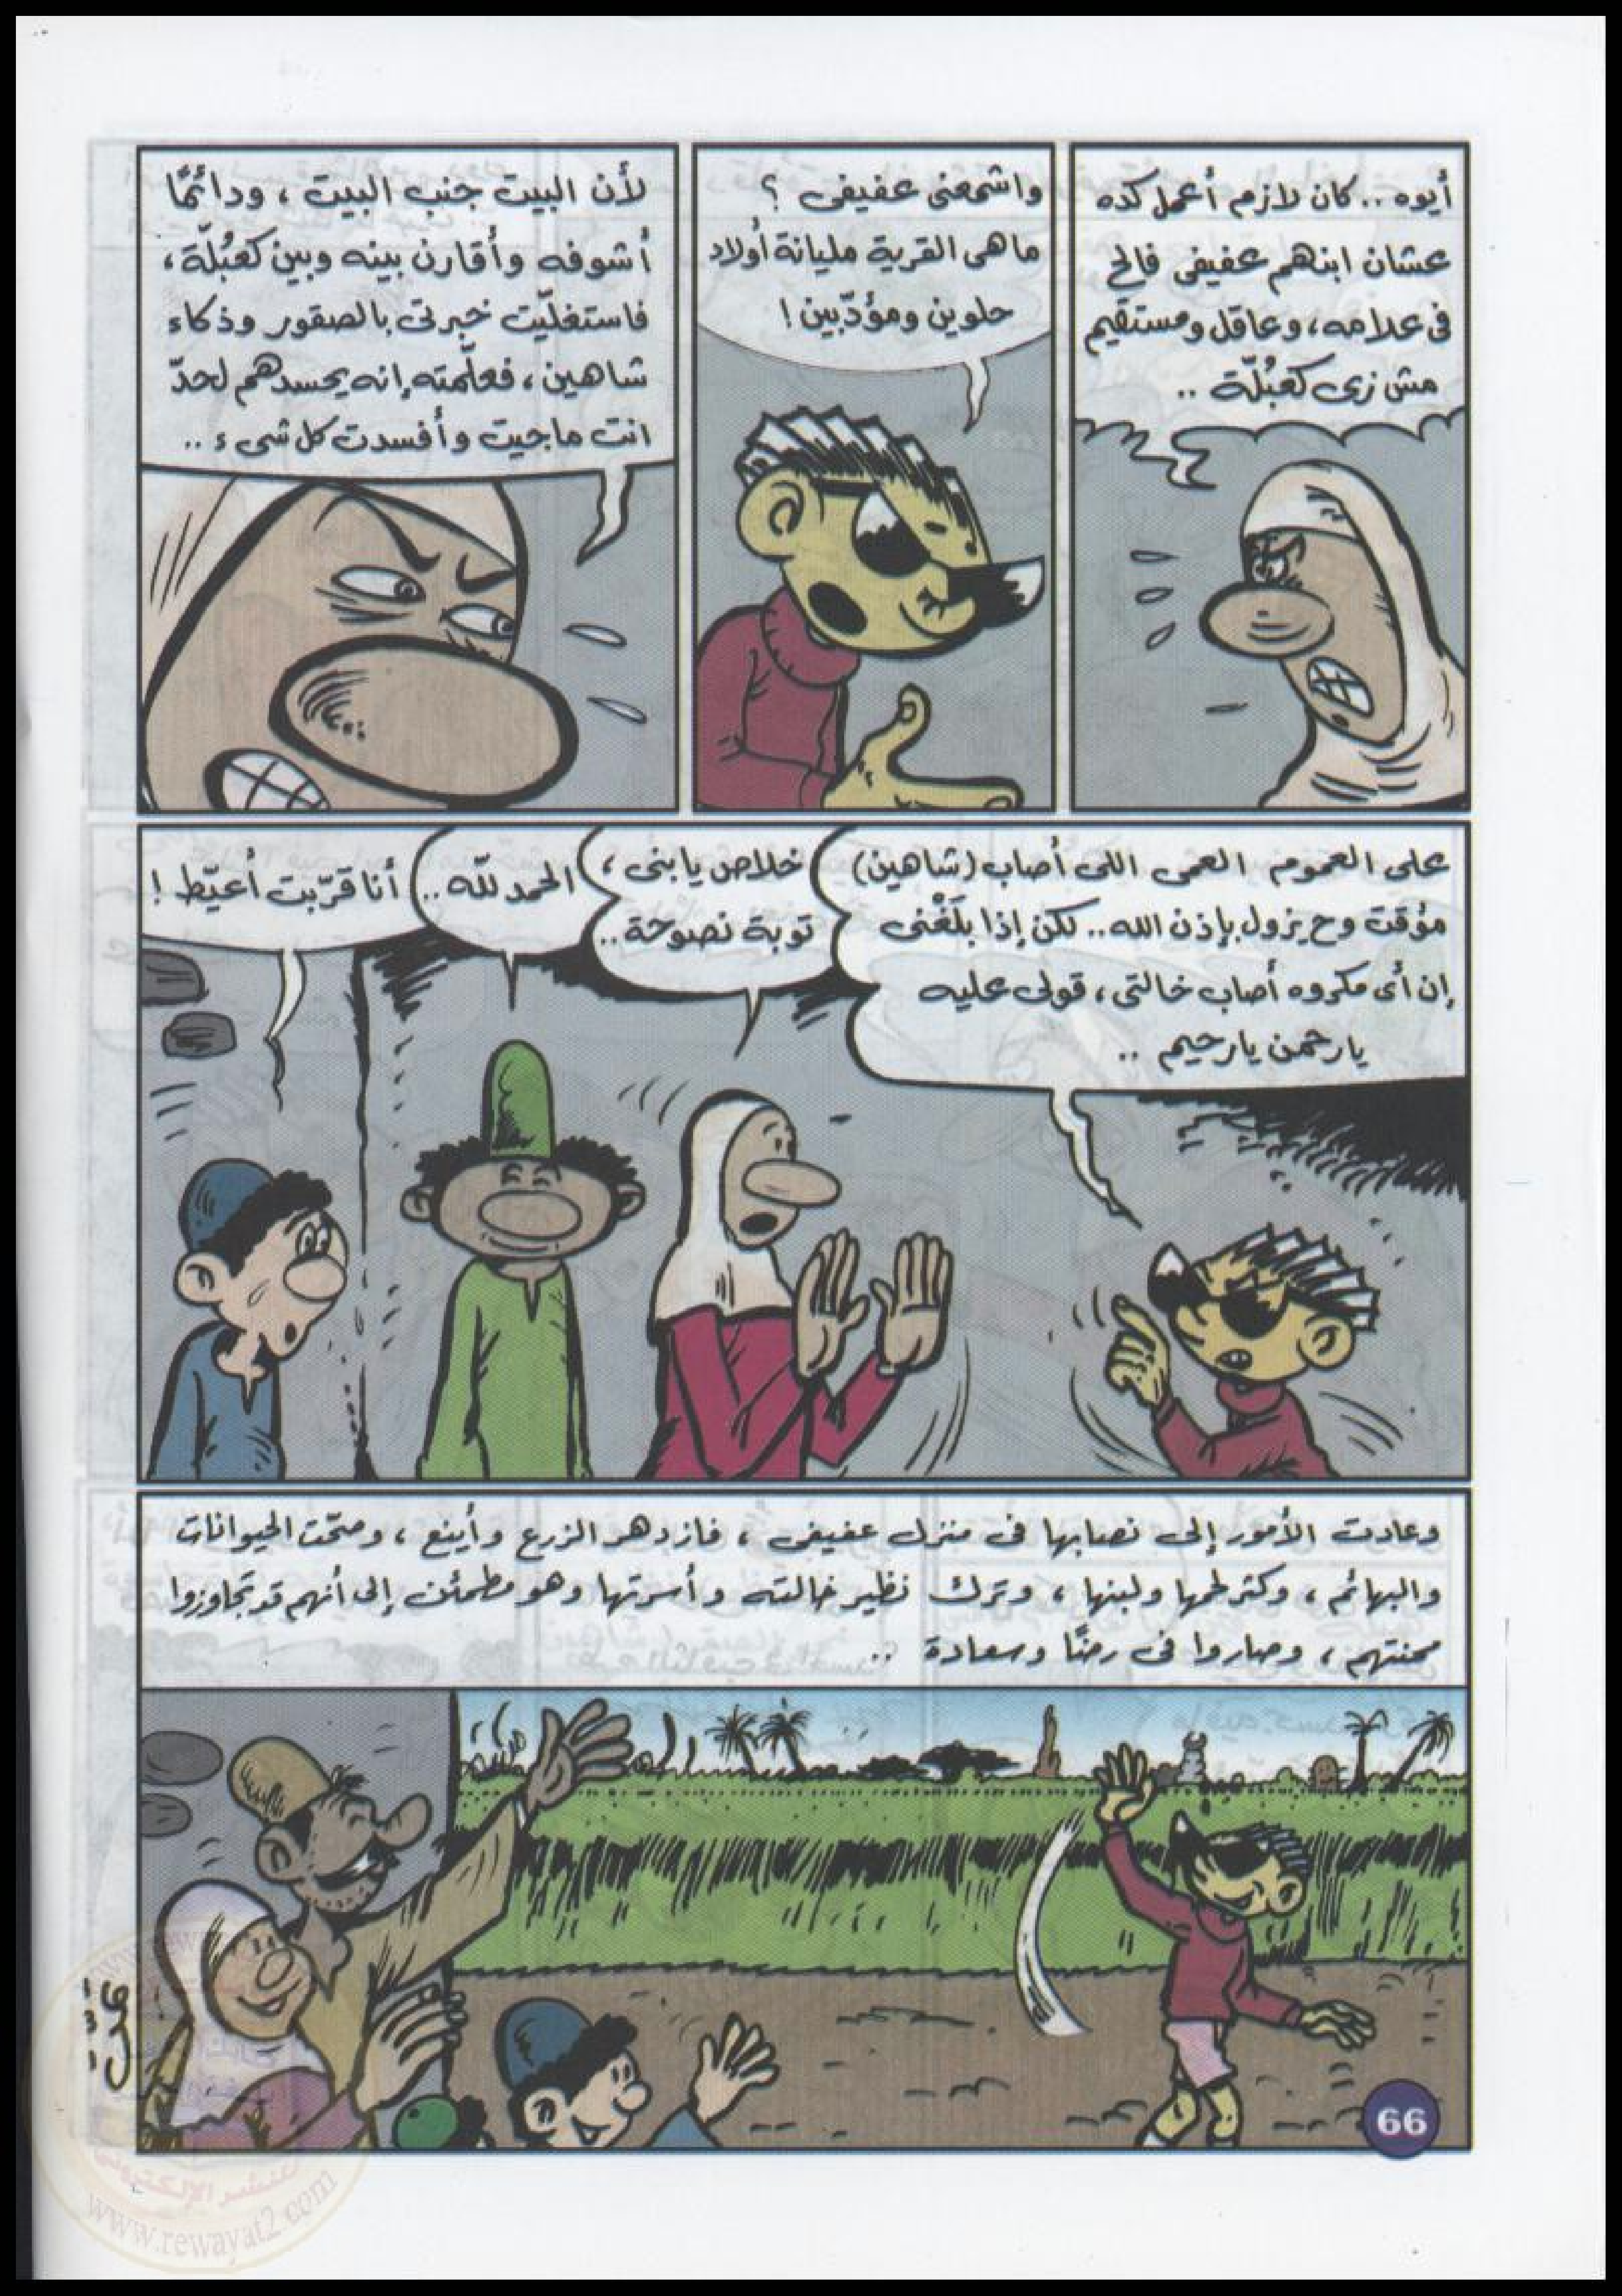 أيوه .. كان لازم أعمل كده
عشان ابنهم عفيفى فالح
فى علامه، وعاقل ومستقيم
مش زى كعبُلّة ..
واشمعنى عفيفى ؟
ما هى القرية مليانة أولاد
حلوين ومؤدّبين !
لأن البيت جنب البيت ، ودائمًا
أشوفه وأقارن بينه وبين كعبُلّة ،
فاستغلّيت خبرتى بالصقور وذكاء
شاهين ، فعلّمته إنه يحسدهم لحدّ
انت ما جيت وأفسدت كل شىء ..
على العموم العمى اللى أصاب (شاهين)
مؤقت وح يزول بإذن الله .. لكن إذا بلَغْنى
إن أى مكروه أصاب خالتى ، قولى عليه
يا رحمن يا رحيم ..
خلاص يا بنى ،
توبة نصوحة ..
الحمد للّه ..
أنا قرّبت أعيّط !
وعادت الأمور إلى نصابها فى منزل عفيفى ، فازدهر الزرع وأينع ، وصحّت الحيوانات
والبهائم ، وكثر لحمها ولبنها ، وترك نظير خالته وأسرتها وهو مطمئن إلى أنهم قد تجاوزوا
محنتهم ، وصاروا فى رضًا وسعادة ..
66
www.rewayat2.com